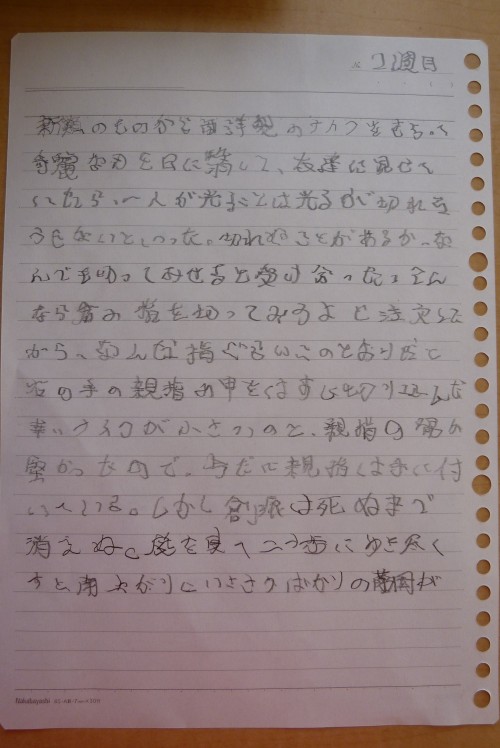 21週目
新類のものから西洋製のナイフをもらって
奇麗な刃を日に翳して、友達に見せて
いたら、一人が光ることは光るが切れそ
うもないといった。切れぬことがあるか、な
んでも切ってみせると受け合った。そん
なら君の指を切ってみろよと注文した
から、なんだ指ぐらいこのとおりだと
右の手の親指の甲をはすに切り込んだ
幸いナイフが小さいのと、親指の骨が
堅かったので、今だに親指は手に付
いている。しかし創痕は死ぬまで
消えぬ。庭を東へ二十歩に行き尽く
すと南上がりにいささかばかりの菜園が
Nakabayashi